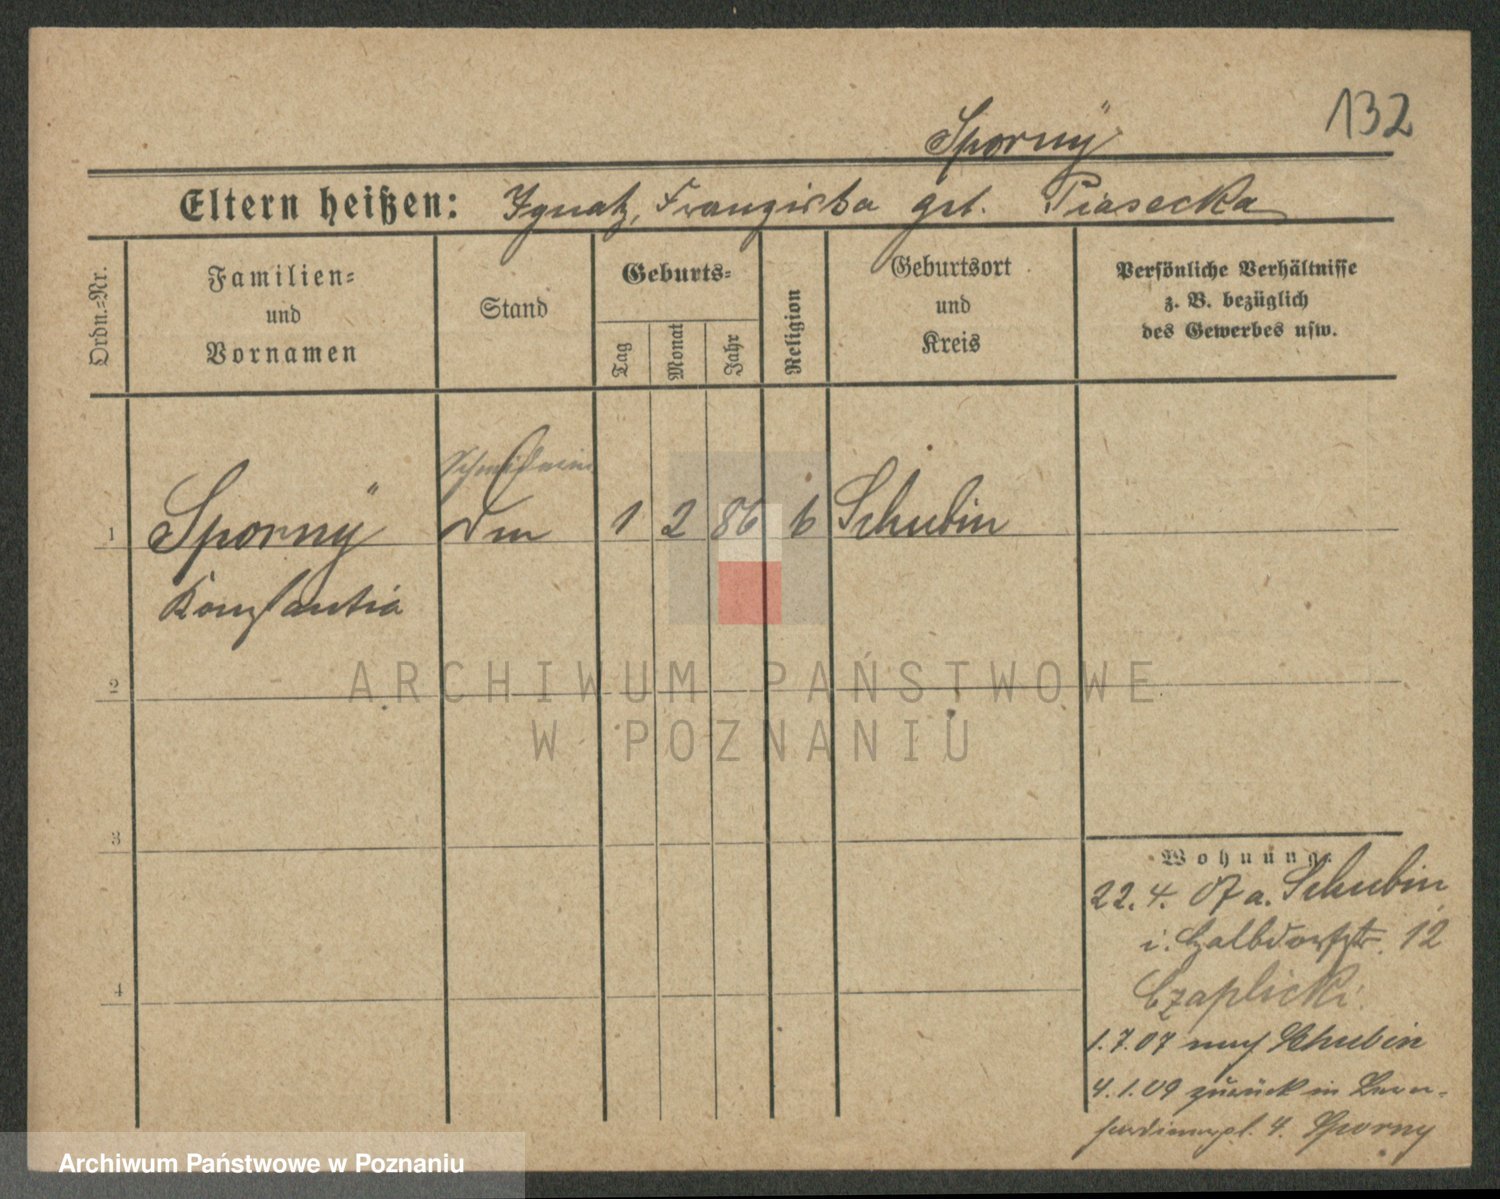 132
Spornÿ
Eltern heißen: Ignatz, Franziska geb. Piasecka
Ordn.=Nr.
Familien=
und
Vornamen
Stand
Geburts=
Tag
Monat
Jahr
Religion
Geburtsort
und
Kreis
Persönliche Verhältnisse
z. B. bezüglich
des Gewerbes usw.
1 Spornÿ 1 2 86 k Schubin
Konstantia
2
3
4
Wohnung.
22. 4. 07 a. Schubin
i. Halbdorfstr. 12
Czaplicki
1.7.07 nach Schubin
4.1.09 zurück in
4. Sporny
ARCHIWUM PAŃSTWOWE
W POZNANIU
Archiwum Państwowe w Poznaniu